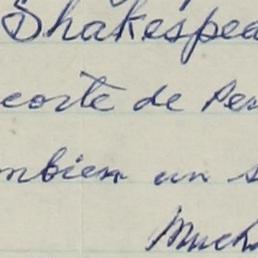 Shakespea
corte de Per
mbien un s
Much